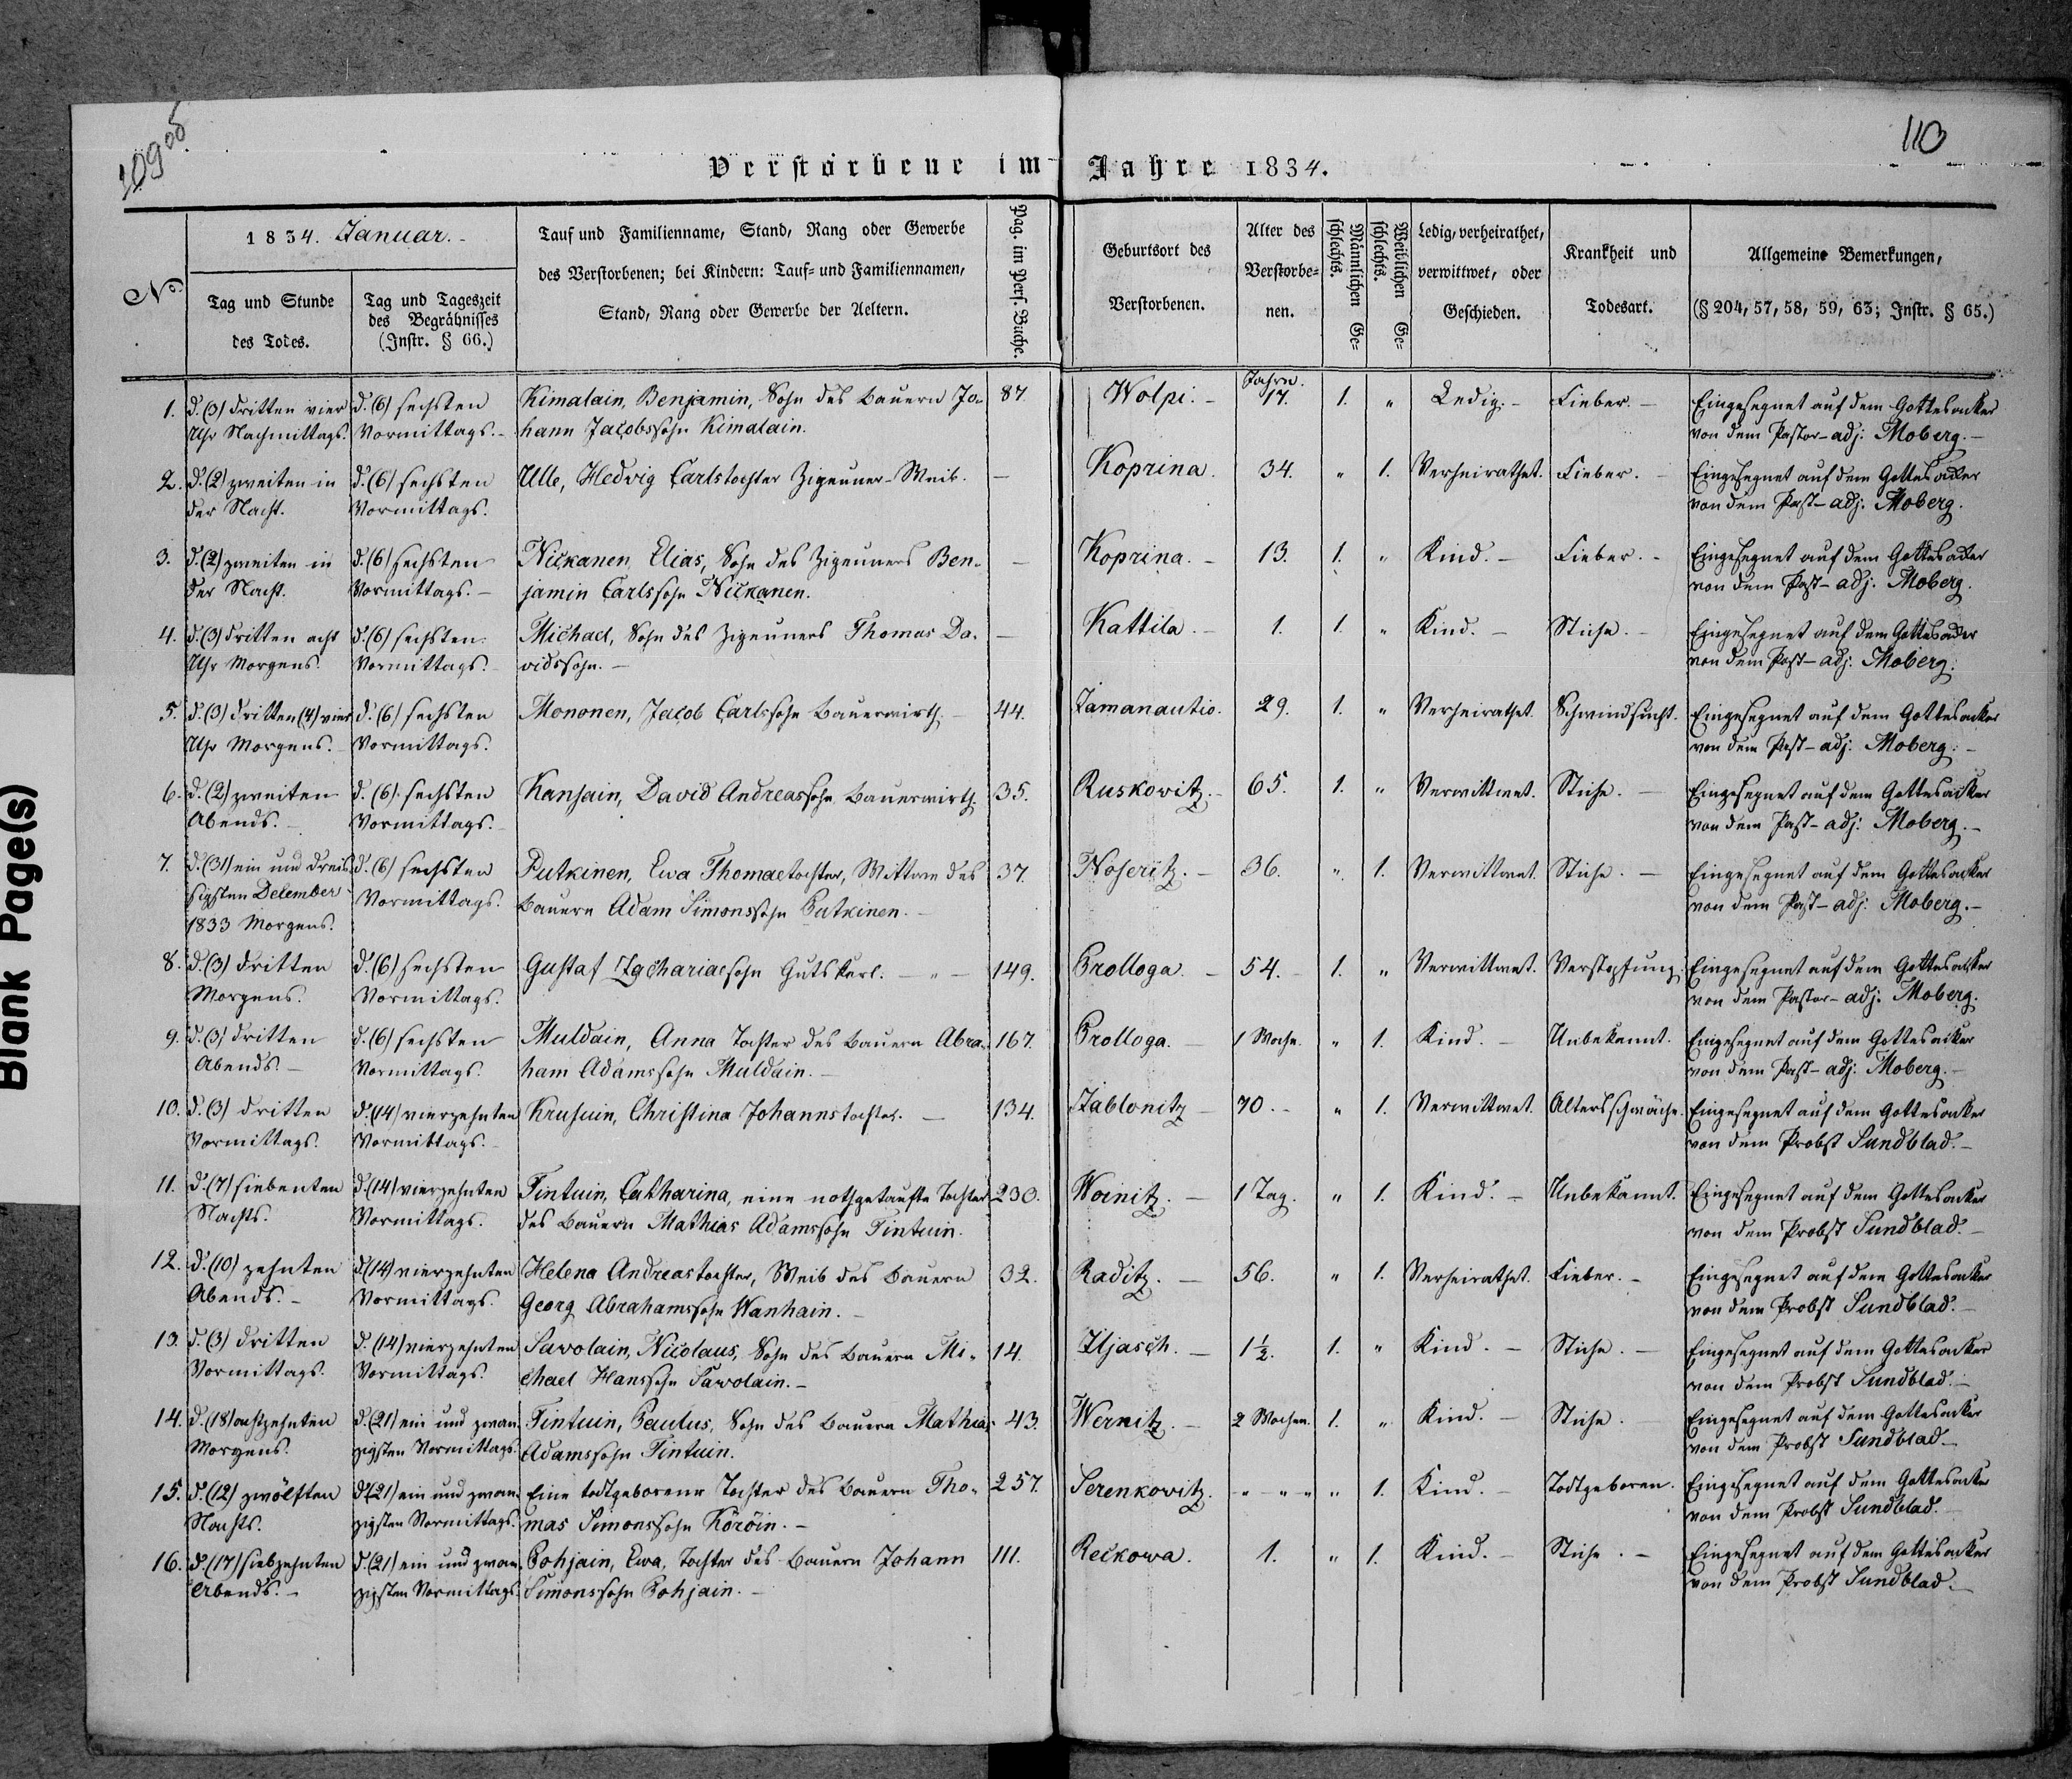 109 об
110
Verstorbene im Jahre 1834.
№
1834. Januar.
Tag und Stunde
des Todes.
Tag und Tageszeit
des Begräbnisses
(Instr. § 66.)
Tauf und Familienname, Stand, Rang oder Gewerbe
des Verstorbenen; bei Kindern: Tauf- und Familiennamen,
Stand, Rang oder Gewerbe der Aeltern.
Pag. im Pers. Buche.
Geburtsort des
Verstorbenen.
Alter des
Verstorbe-
nen.
Männlichen Ge-
schlechts.
Weiblichen Ge-
schlechts.
Ledig, verheirathet,
verwittwet, oder
Geschieden.
Krankheit und
Todesart.
Allgemeine Bemerkungen,
(§ 204, 57, 58, 59, 63; Instr. § 65.)
Jahre.
1. d. (3) dritten vier d. (6) sechsten Kimalain, Benjamin, Sohn des Bauern Jo- 87. Wolpi. 17. 1. " Ledig. Fieber. Eingesegnet auf dem Gottesacker
Uhr Nachmittags. Vormittags. hann Jacobssohn Kimalain. von dem Pastor-adj: Moberg.
2. d. (2) zweiten in d. (6) sechsten Ulle, Hedvig Carlstochter Zigeuner-Weib. — Koprina. 34. " 1. Verheirathet. Fieber. Eingesegnet auf dem Gottesacker
der Nacht. Vormittags. von dem Past-adj: Moberg.
3. d. (2) zweiten in d. (6) sechsten Nickanen, Elias, Sohn des Zigeuners Ben- — Koprina. 13. 1. " Kind. Fieber. Eingesegnet auf dem Gottesacker
der Nacht. Vormittags. jamin Carlssohn Nickanen. von dem Past-adj: Moberg.
4. d. (3) dritten acht d. (6) sechsten Michael, Sohn des Zigeuners Thomas Da- — Kattila. 1. 1. " Kind. Stiche. Eingesegnet auf dem Gottesacker
Uhr Morgens. Vormittags. vidssohn. von dem Past-adj: Moberg.
5. d. (3) dritten (4) vier d. (6) sechsten Mononen, Jacob Carlssohn Bauerwirth. 44. Jamanautio. 29. 1. " Verheirathet. Schwindsucht. Eingesegnet auf dem Gottesacker
Uhr Morgens. Vormittags. von dem Past-adj: Moberg.
6. d. (2) zweiten d. (6) sechsten Kansain, David Andreassohn Bauerwirth. 35. Ruskovitz. 65. 1. " Verwittwet. Stiche. Eingesegnet auf dem Gottesacker
Abends. Vormittags. von dem Past-adj: Moberg.
7. d. (31) ein und dreis- d. (6) sechsten Putkinen, Ewa Thomaetochter, Wittwe des 37. Noseritz. 36. " 1. Verwittwet. Stiche. Eingesegnet auf dem Gottesacker
sigsten December Vormittags. Bauern Adam Simonssohn Putkinen. von dem Past-adj: Moberg.
1833 Morgens.
8. d. (3) dritten d. (6) sechsten Gustaf Zachariaesohn Gutskerl. 149. Prolloga. 54. 1. " Verwittwet. Verstopfung. Eingesegnet auf dem Gottesacker
Morgens. Vormittags. von dem Pastor-adj: Moberg.
9. d. (3) dritten d. (6) sechsten Muldain, Anna Tochter des Bauern Abra- 167. Prolloga. 1 Woche. " 1. Kind. Unbekannt. Eingesegnet auf dem Gottesacker
Abends. Vormittags. ham Adamssohn Muldain. von dem Past-adj: Moberg.
10. d. (3) dritten d. (14) vierzehnten Krusuin, Christina Johannstochter. 134. Jablonitz 70. " 1. Verwittwet. Altersschwäche. Eingesegnet auf dem Gottesacker
Vormittags. Vormittags. von dem Probst Sundblad.
11. d. (7) siebenten d. (14) vierzehnten Tintuin, Catharina, eine nothgetaufte Tochter 230. Woinitz. 1 Tag. " 1. Kind. Unbekannt. Eingesegnet auf dem Gottesacker
Nachts. Vormittags. des Bauern Mathias Adamssohn Tintuin. von dem Probst Sundblad.
12. d. (10) zehnten d. (14) vierzehnten Helena Andreastochter, Weib des Bauern 32. Raditz. 56. " 1. Verheirathet. Fieber. Eingesegnet auf dem Gottesacker
Abends. Vormittags. Georg Abrahamssohn Wanhain. von dem Probst Sundblad.
13. d. (3) dritten d. (14) vierzehnten Sawolain, Nicolaus, Sohn des Bauern Mi- 14. Iljasch. 1½. 1. " Kind. Stiche. Eingesegnet auf dem Gottesacker
Vormittags. Vormittags. chael Hanssohn Sawolain. von dem Probst Sundblad.
14. d. (18) achtzehnten d. (21) ein und zwan- Tintuin, Paulus, Sohn des Bauern Mathias 43. Wernitz. 2 Wochen. 1. " Kind. Stiche. Eingesegnet auf dem Gottesacker
Morgens. zigsten Vormittags. Adamssohn Tintuin. von dem Probst Sundblad
15. d. (12) zwölften d. (21) ein und zwan- Eine todtgeborene Tochter des Bauern Tho- 257. Serenkovitz. " " " " 1. Kind. Todtgeboren. Eingesegnet auf dem Gottesacker
Nachts. zigsten Vormittags. mas Simonssohn Köröin. von dem Probst Sundblad.
16. d. (17) siebzehnten d. (21) ein und zwan- Pohjain, Ewa, Tochter des Bauern Johann 111. Reckowa. 1. " 1. Kind. Stiche. Eingesegnet auf dem Gottesacker
Abends. zigsten Vormittags. Simonssohn Pohjain. von dem Probst Sundblad.
Blank Page(s)